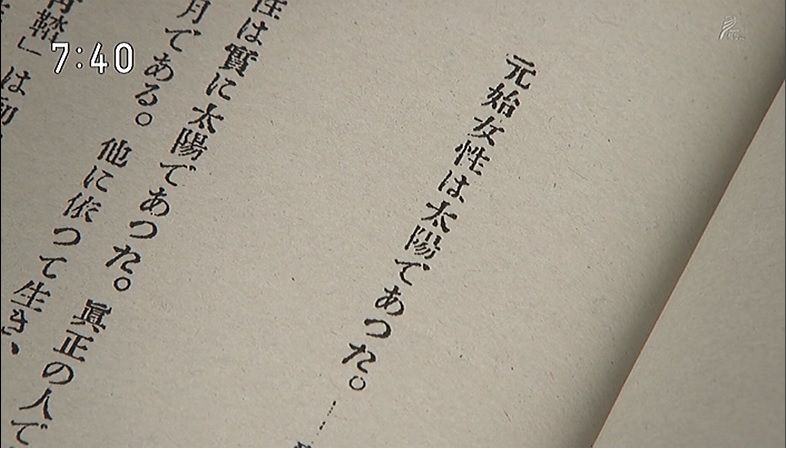 7:40
元始女性は太陽であつた。――
性は實に太陽であつた。眞正の人で
月である。他に依つて生き、
鞜」は初